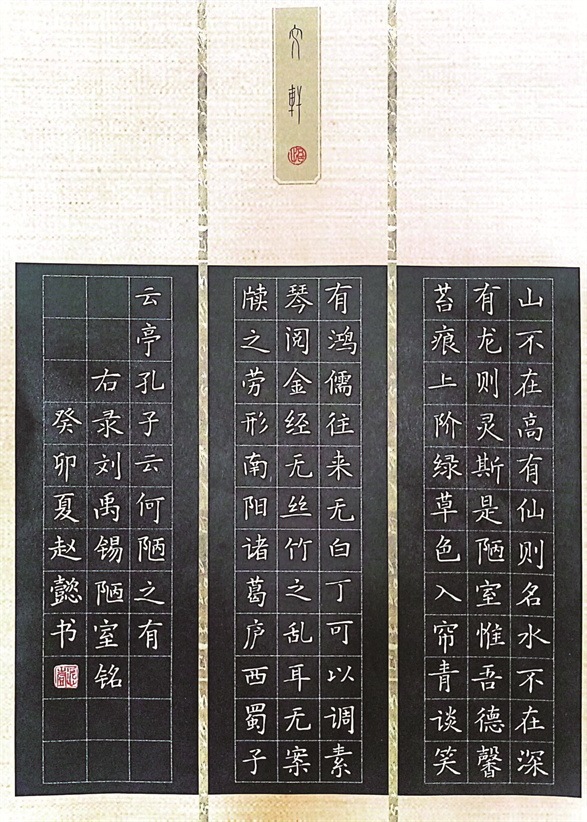 文軒
山不在高有仙则名水不在深
有龙则灵斯是陋室惟吾德馨
苔痕上阶绿草色入帘青谈笑
有鸿儒往来无白丁可以调素
琴阅金经无丝竹之乱耳无案
牍之劳形南阳诸葛庐西蜀子
云亭孔子云何陋之有
右录刘禹锡陋室铭
癸卯夏赵懿书